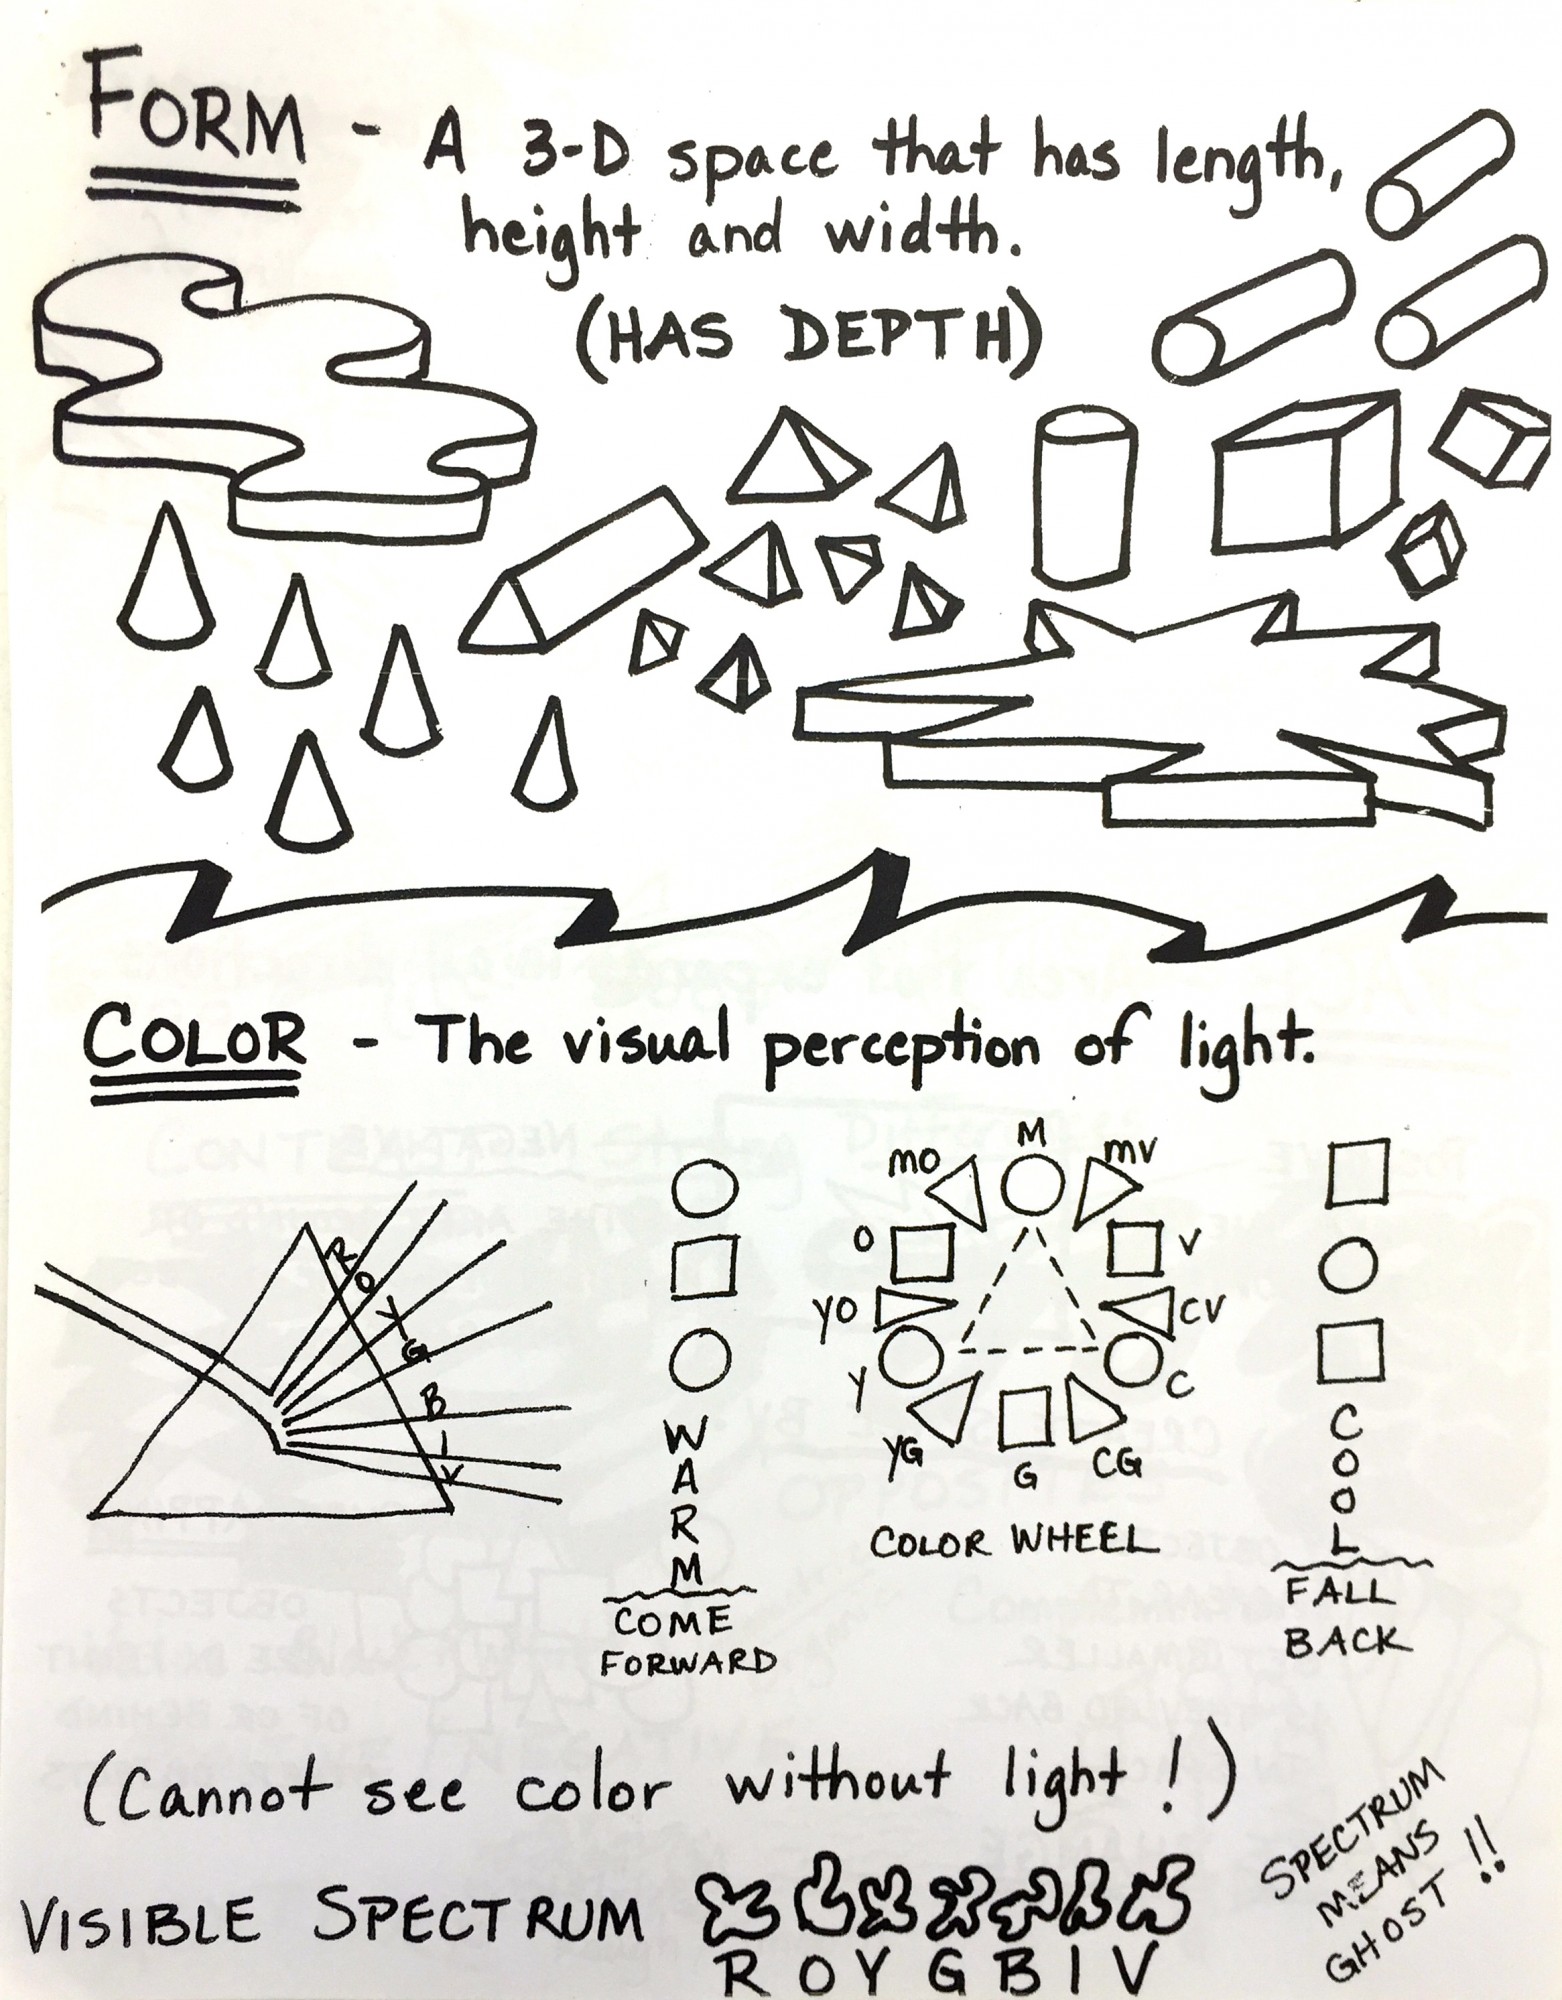 FORM - A 3-D space that has length,
height and width.
(HAS DEPTH)
COLOR - The visual perception of light.
R
O
Y
G
B
I
V
WARM
COME
FORWARD
M
MV
V
CV
C
CG
G
YG
Y
YO
O
MO
COLOR WHEEL
COOL
FALL
BACK
(Cannot see color without light!)
VISIBLE SPECTRUM
R O Y G B I V
SPECTRUM
MEANS
GHOST !!